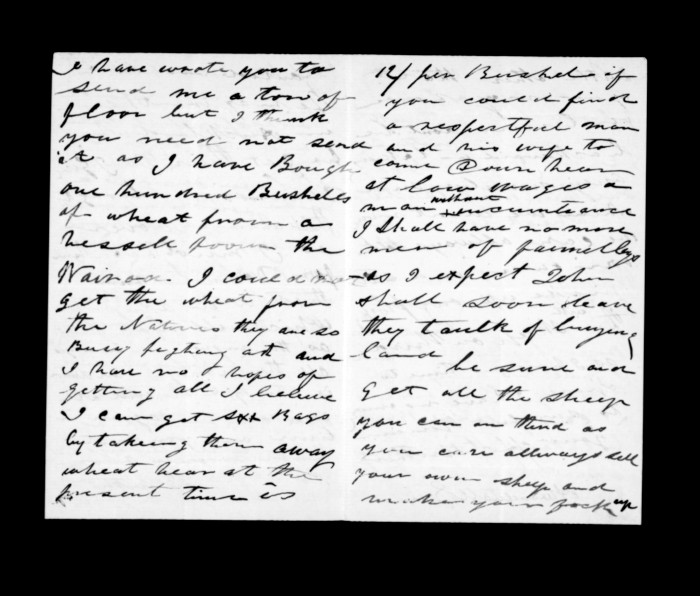 I have wrote you to
send me a ton of
floor but I think
you need not send
it as I have Bough
one hundred Bushells
of wheat from a
vessell from the
Wairoa. I could not
get the wheat from
the Natives they are so
Buisy fighting att and
I have no hopes of
getting all I beleive
I can get Bags
by takeing them away
wheat hear at the
present time is
12/ per Bushel if
you could find
a respectful man
and his wife to
come down hear
at low wages a
man without incumbrance
I Shall have no more
men of familleys
as I expect John
shall soon leave
they taulk of buying
land
be sure and
get all the sheep
you can on third as
you can allways sell
your own sheep and
make your flock up